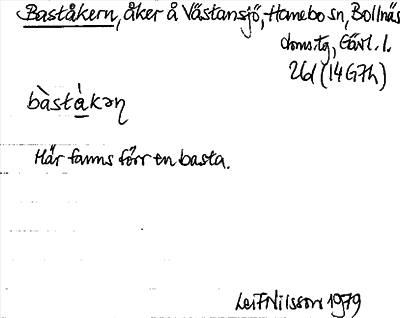 Baståkern, åker å Västansjö, Hanebo sn, Bollnäs
doms.tg, Gävl. l.
2d (14G7h)
bàstà̱kəṇ
Här fanns förr en basta.
Leif Nilsson 1979